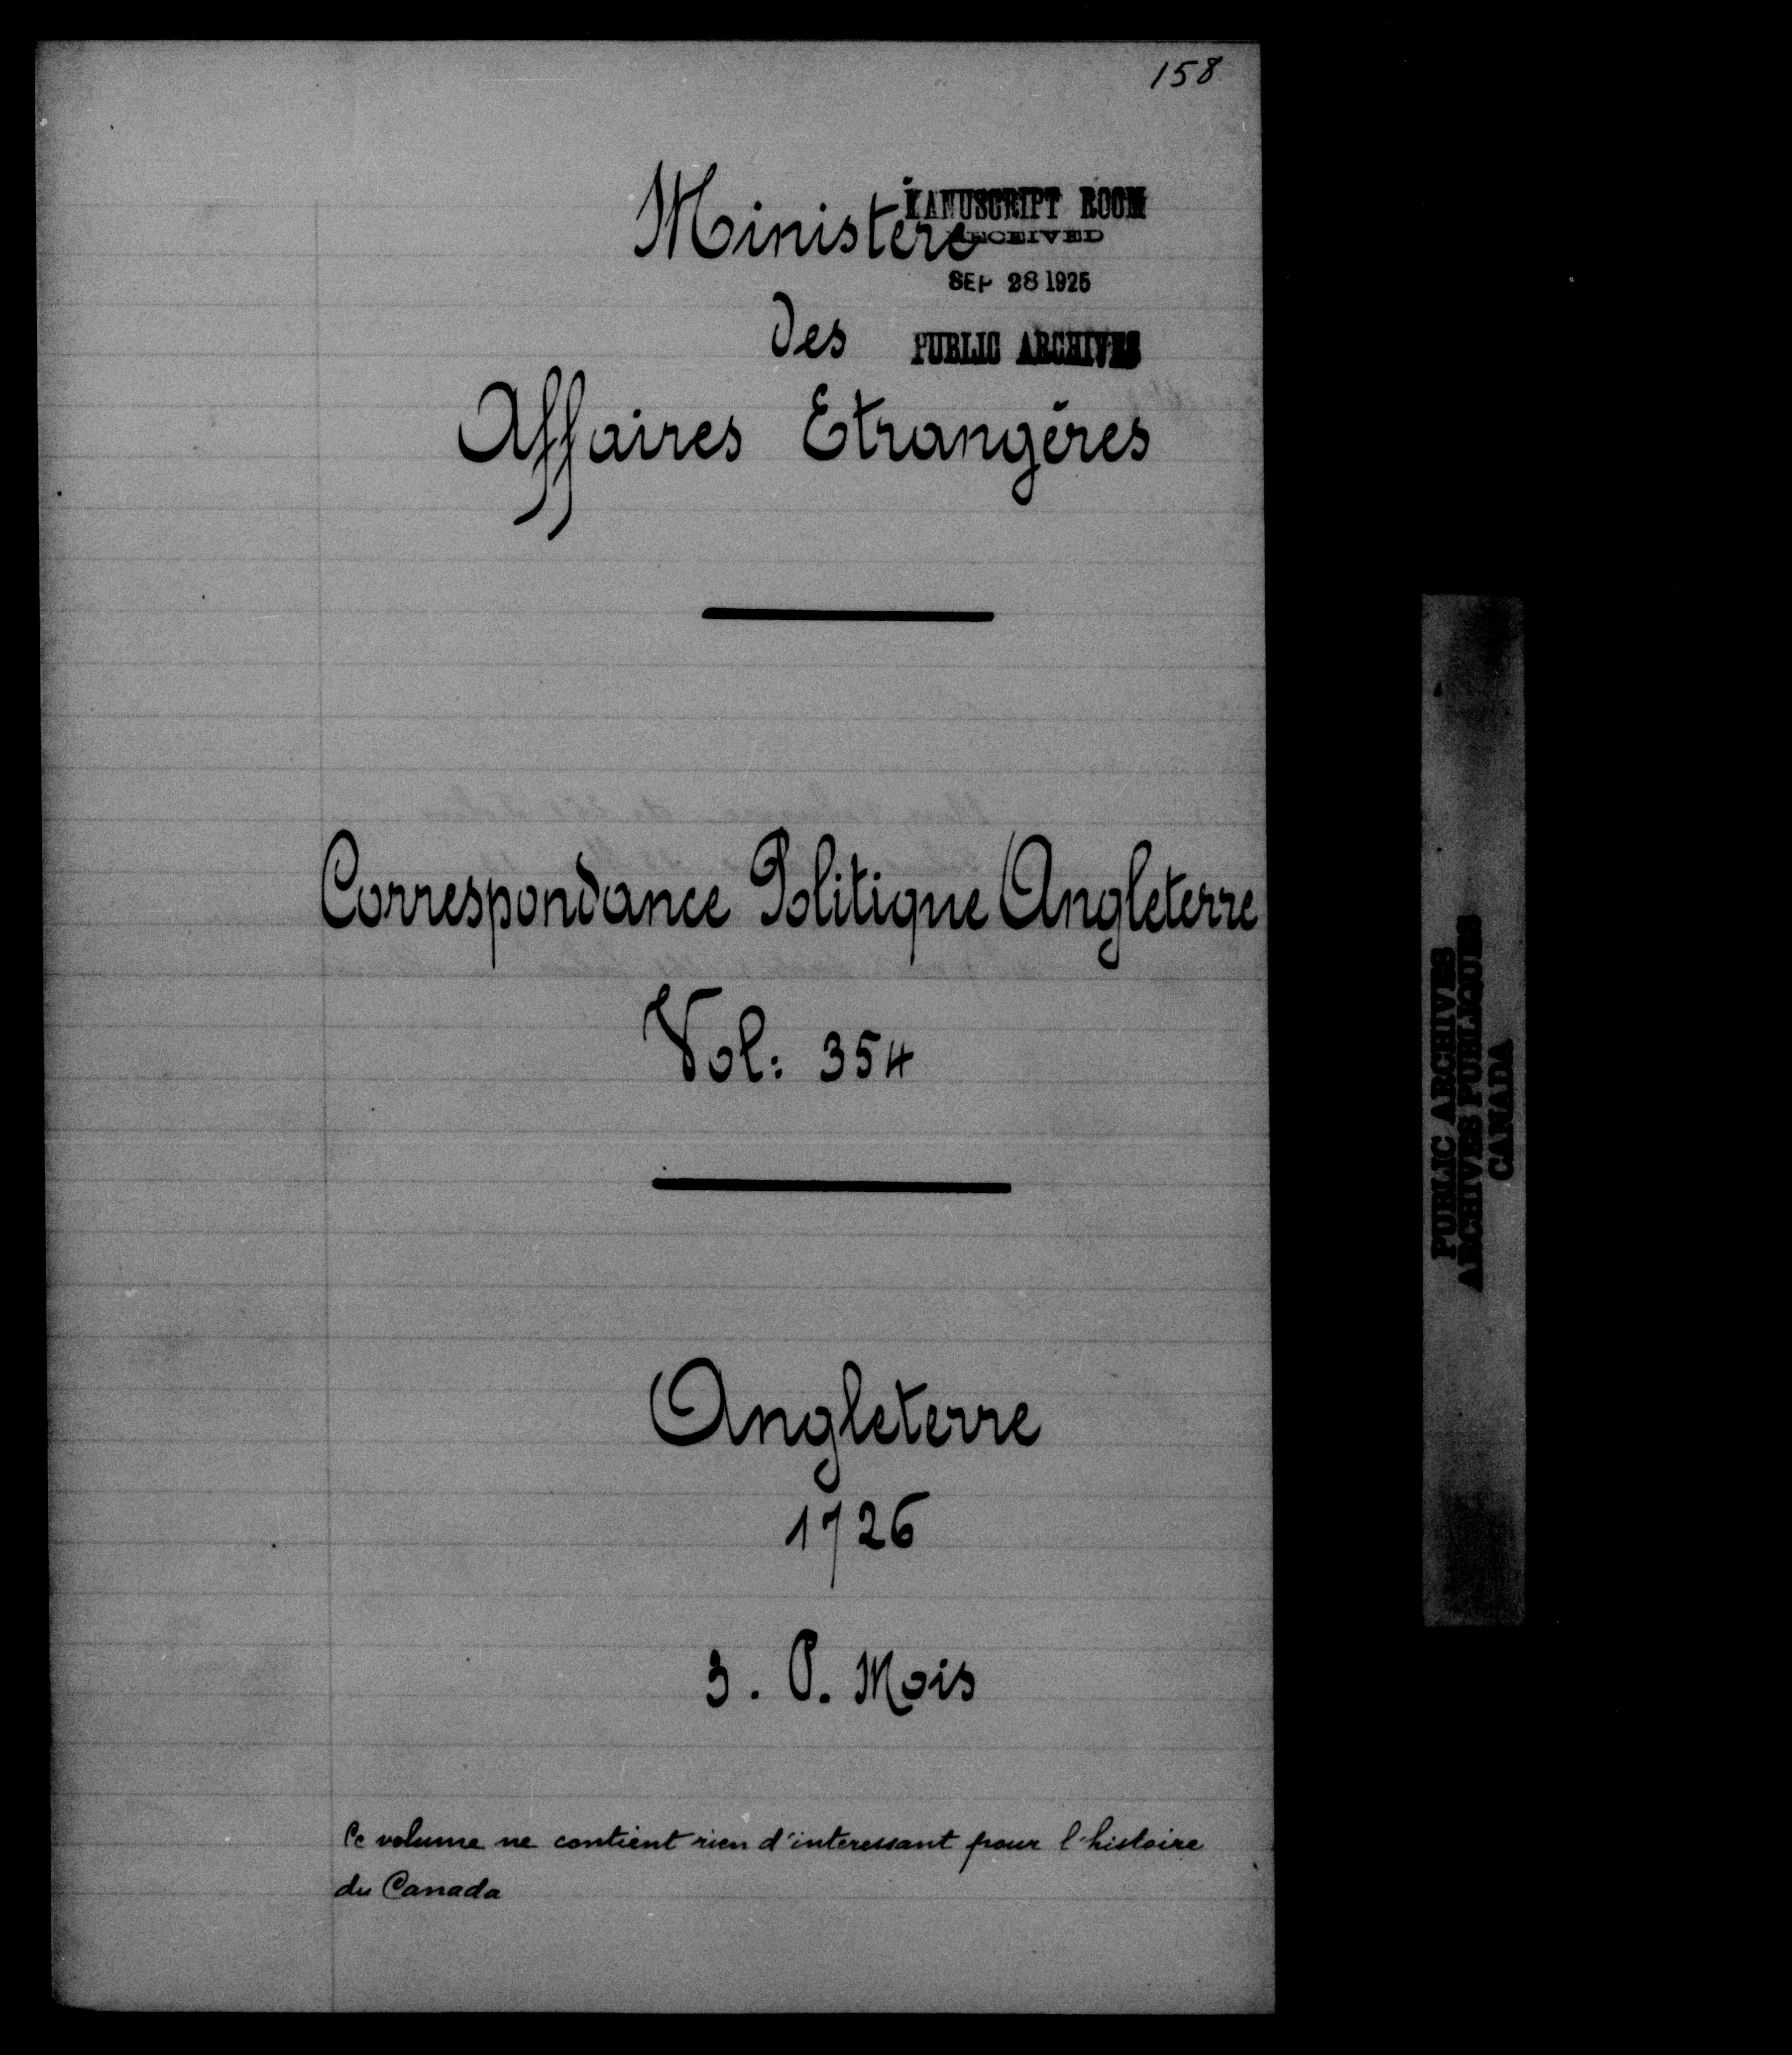 158
Ministère
MANUSCRIPT ROOM
RECEIVED
SEP 28 1925
PUBLIC ARCHIVES
des
Affaires Etrangères
Correspondance Politique Angleterre
Vol: 354
Angleterre
1726
3. P. Mois
Ce volume ne contient rien d'interessant pour l'histoire
du Canada
PUBLIC ARCHIVES
ARCHIVES PUBLIQUES
CANADA